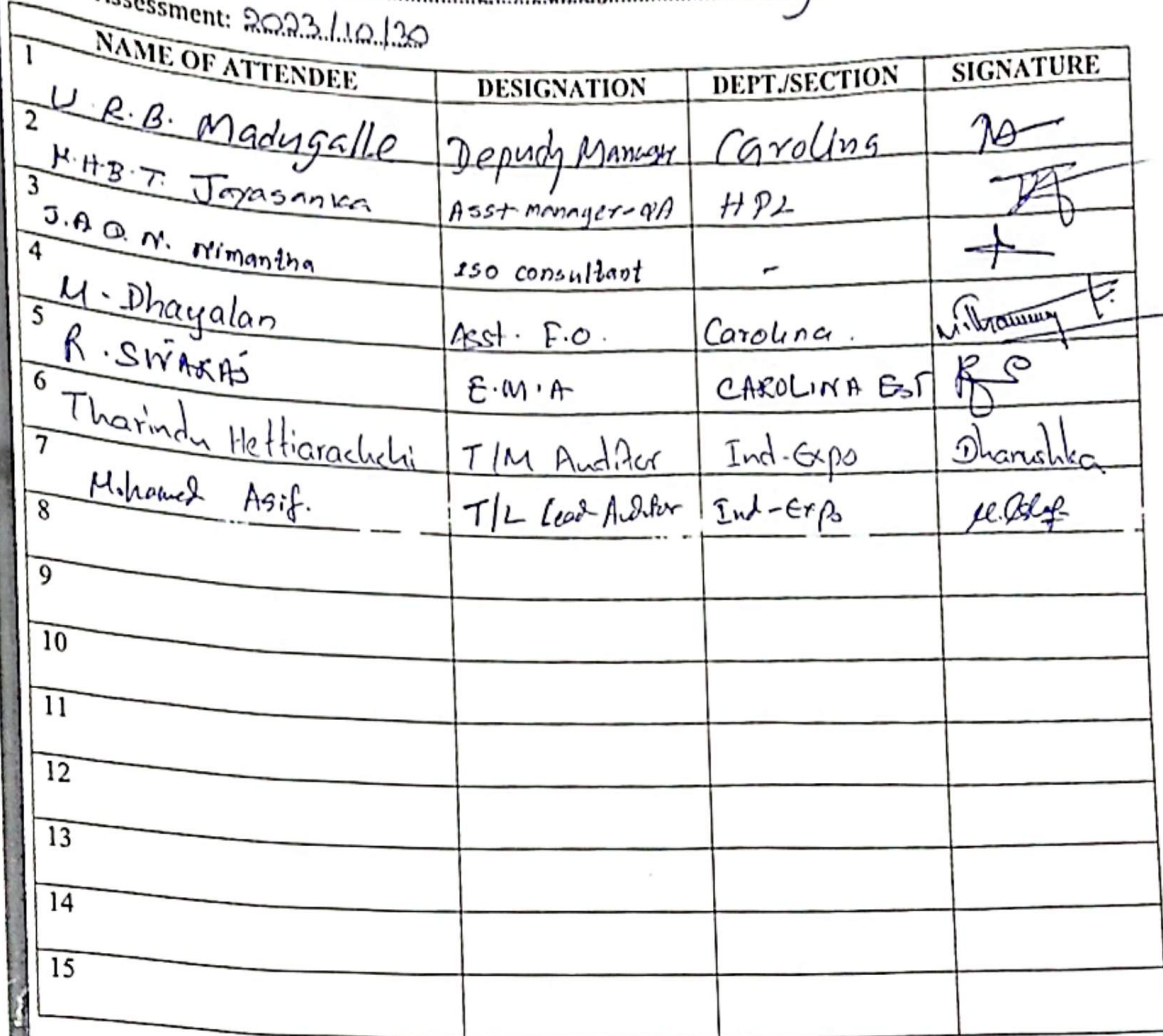 ssessment: 2023/10/20
NAME OF ATTENDEE DESIGNATION DEPT./SECTION SIGNATURE
1 U.R.B. Madugalle Depudy Manager Carolina
2 H.H.B.T. Jayasanka Asst manager-QA HPL
3 J.A.D.N. Nimantha ISO consultant -
4 M. Dhayalan Asst. F.O. Carolina.
5 R. E.M.A CAROLINA EST
6 Tharindu Hettiarachchi T/M Auditor Ind-Expo Dharushka
7 Mohamed Asif. T/L Lead Auditor Ind-Expo
8
9
10
11
12
13
14
15